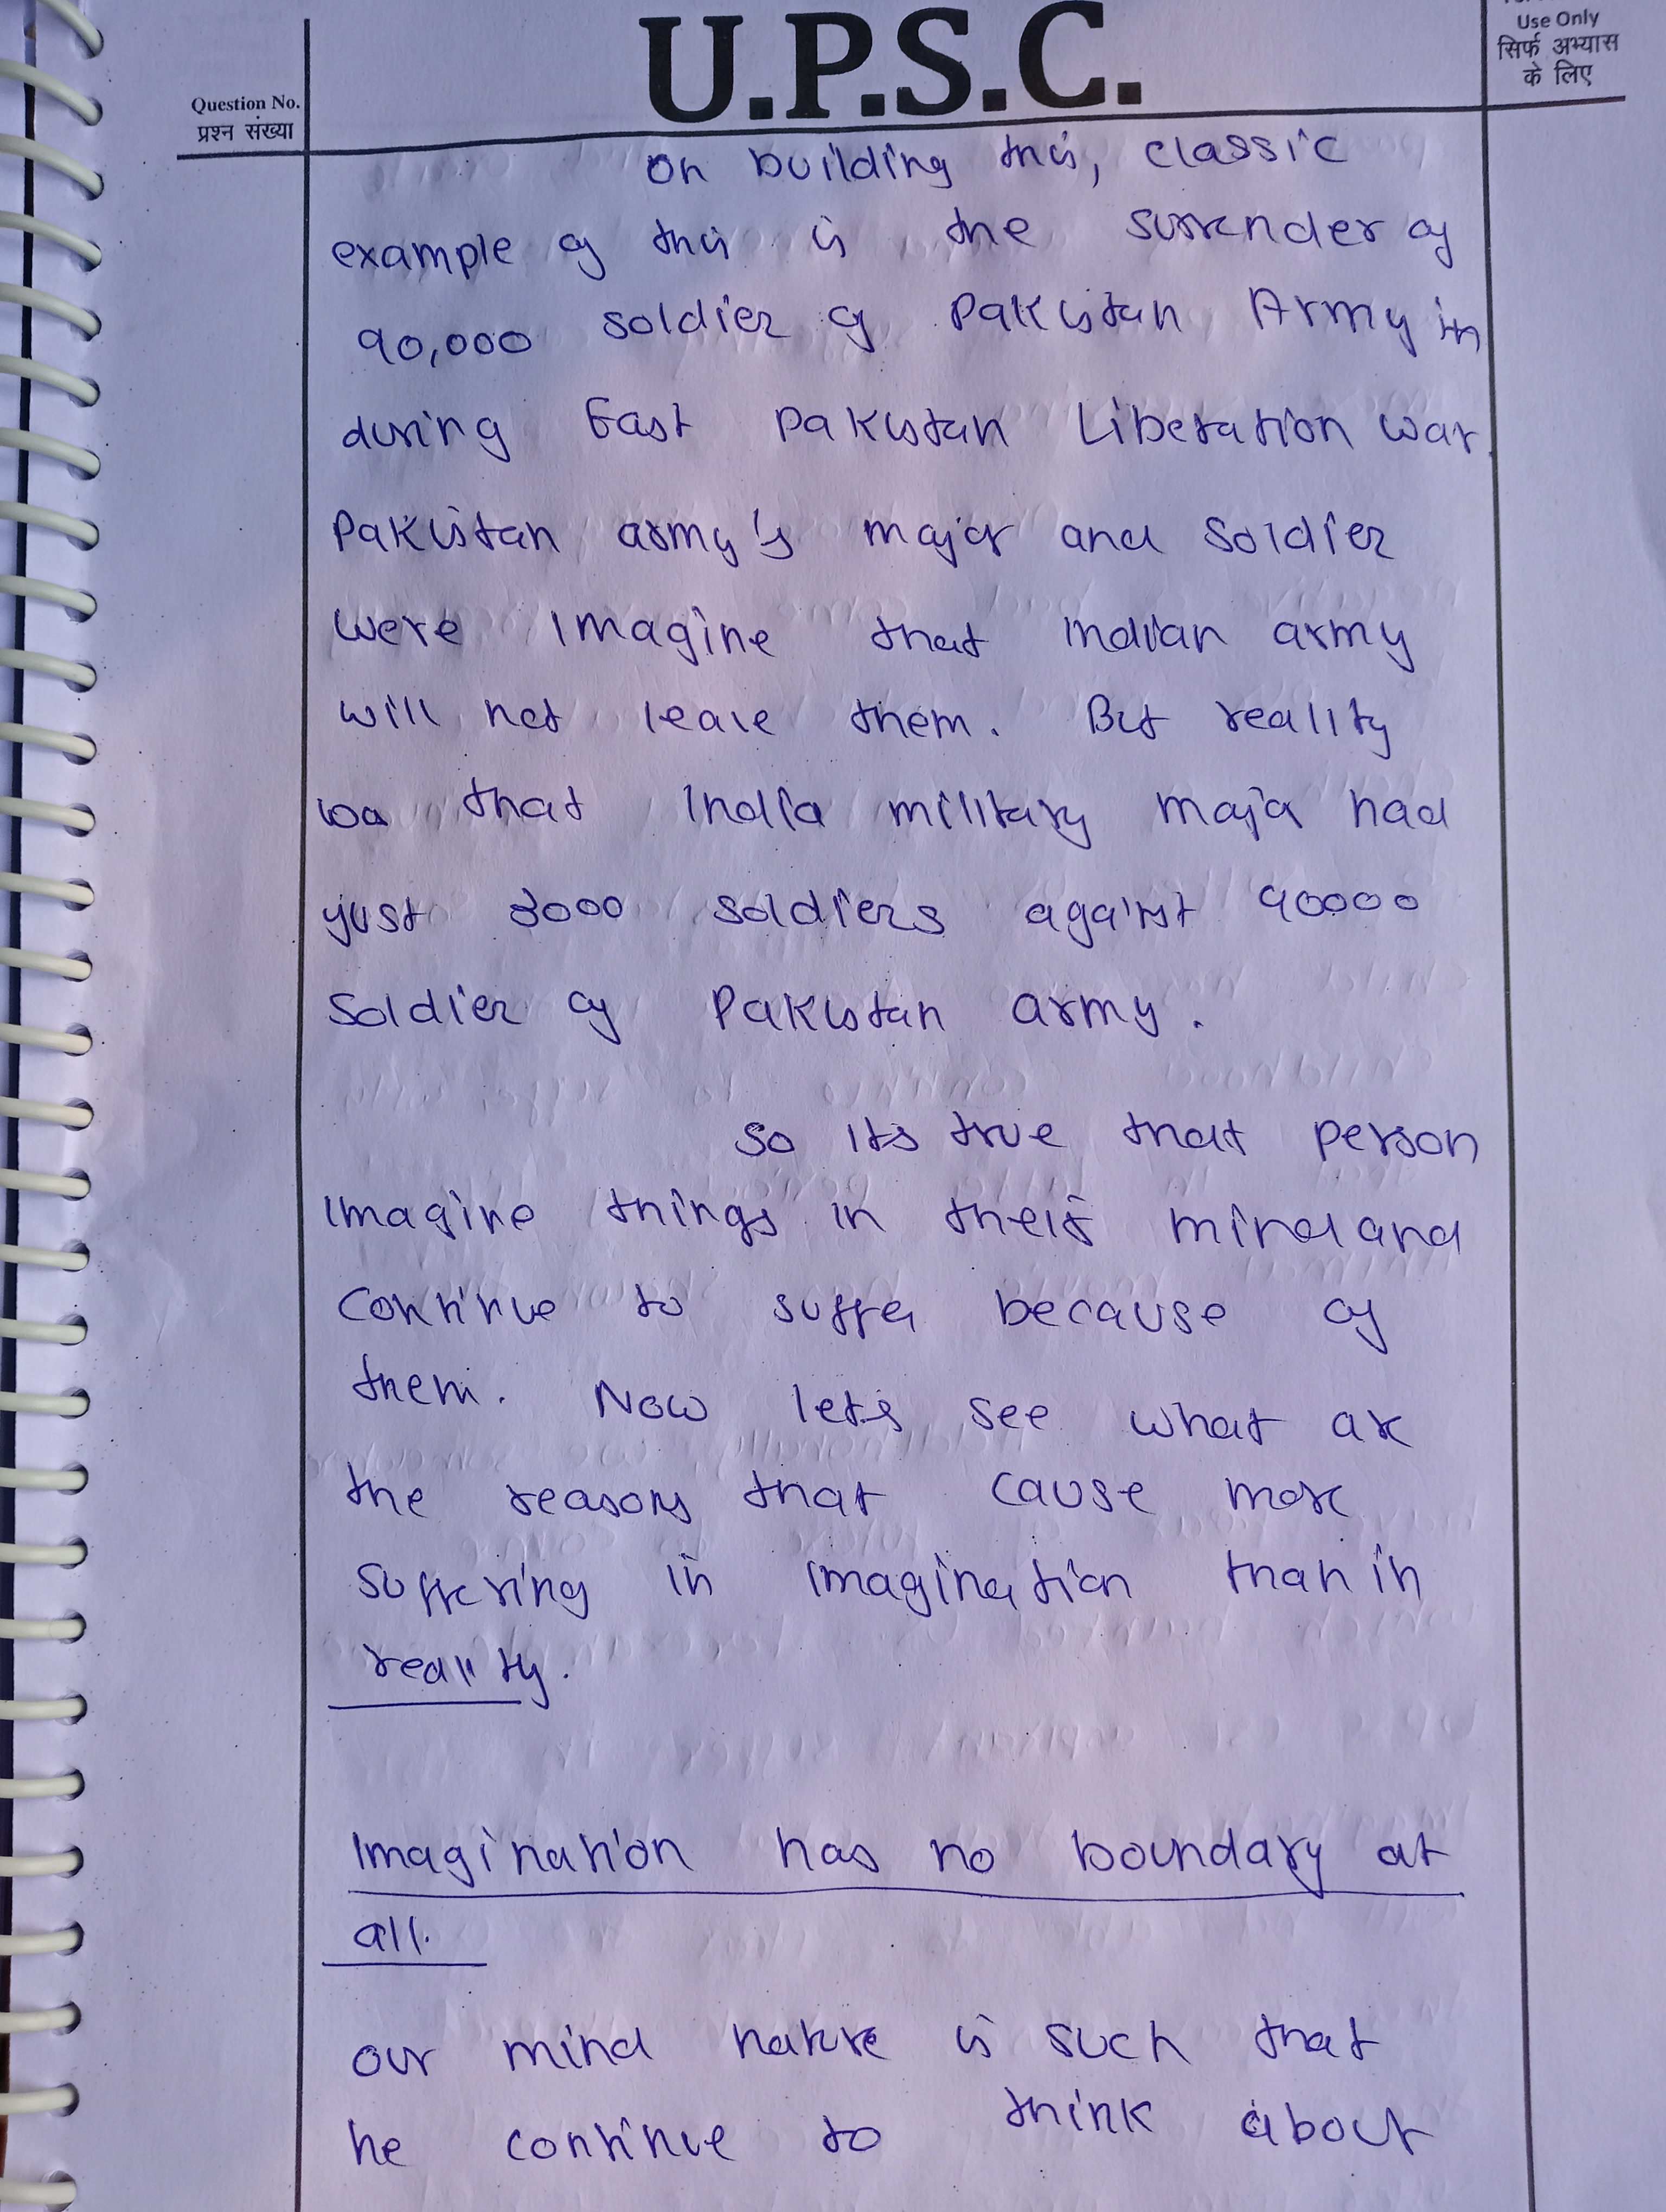 U.P.S.C.
Use Only
सिर्फ अभ्यास
के लिए
Question No.
प्रश्न संख्या
On building this, classic
example of this is the surrender of
90,000 soldier of Pakistan Army in
during East Pakistan Liberation war.
Pakistan army's major and soldier
were imagine that Indian army
will not leave them. But reality
wa that India military major had
just 3000 soldiers against 90000
soldier of Pakistan army.
so its true that person
imagine things in their mind and
continue to suffer because of
them. Now lets see what are
the reasons that cause more
suffering in imagination than in
reality.
Imagination has no boundary at
all.
our mind nature is such that
he continue to think about